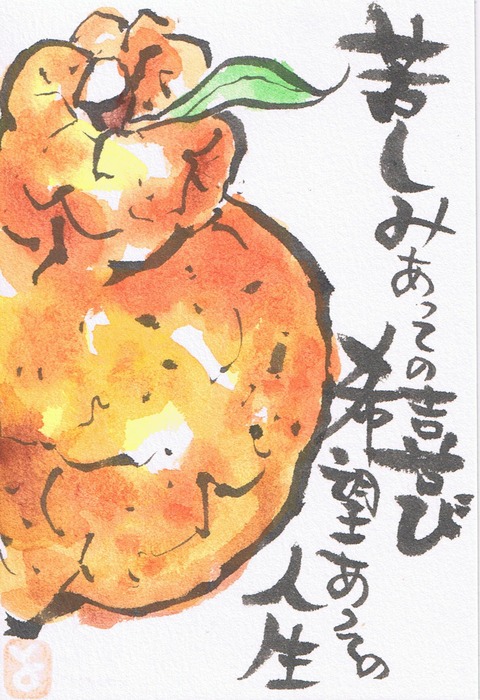 苦しみあっての喜び
希望あっての
人生